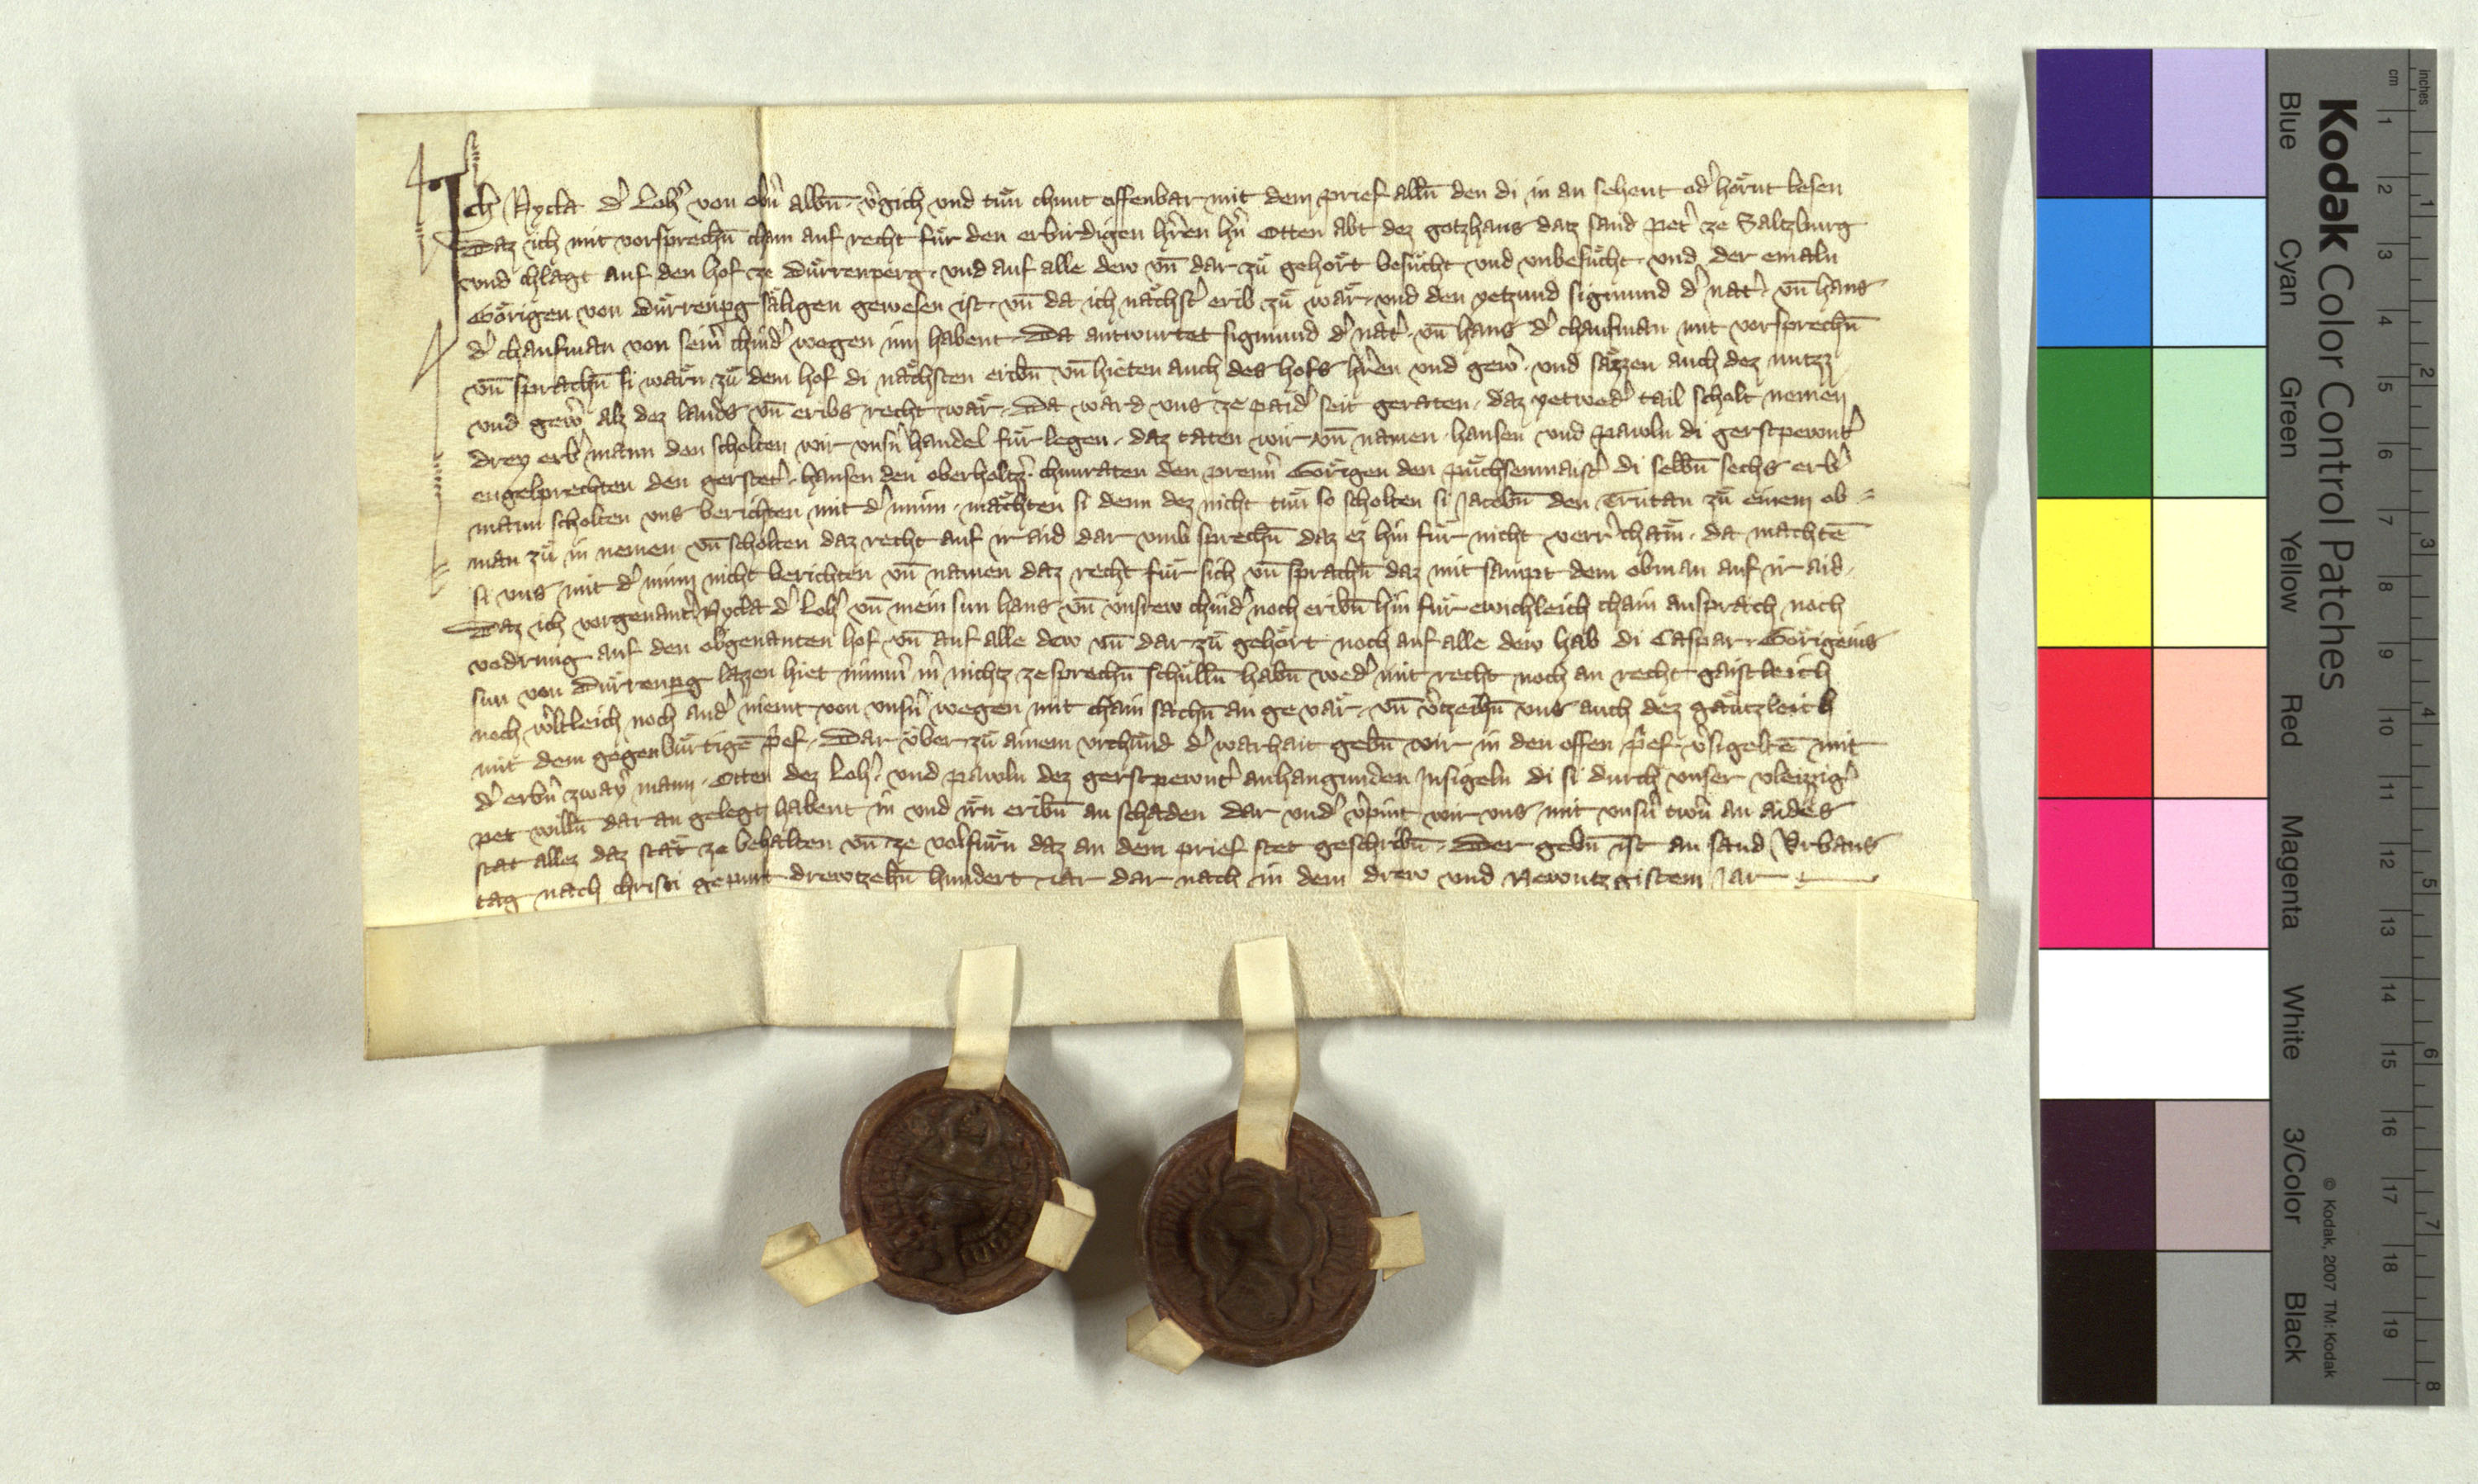 Ich Nycla d' Loh' von obn' albn̄ v'gich und tuͤn chunt offenbar mit dem prief alln̄ den di in an sehent od' hoͤrnt lesen
Daz ich mit vorsprechn̄ cham auf recht fuͤr den erbirdigen hr'en hn' Otten abt dez gotzhaus datz sand Pet' ze Saltzburg
und chlagt auf den hof ze Duͤrrenperg und auf alle dew vn̄ dar zuͤ gehoͤrt besuͤcht und unbesuͤcht und der emaln
Goͤrigen von Duͤrrenpg saͤligen gewesen ist vn̄ da ich naͤchst' erib zuͤ waͤr und den yetzund Sigmund d' nat' vn̄ hans
d' chaufman von sein' chind' wegen inn habent Da antwurtet Sigmund d' nat' vn̄ hans d' chaufman mit vorsprechn̄
vn̄ sprachn̄ si waͤrn zuͤ dem hof di naͤchsten eribn̄ vn̄ hieten auch des hofs hr'en und gew' und saͤzzen auch dez nutzz
und gew' alz dez lands vn̄ eribs recht waͤr Da ward uns ze paid' seit geraten daz yetwed' tail scholt nemen
drey erb' mann den scholten wir unsn' handel fuͤr legen daz taten wir vn̄ namen hansen und pawln di gerstpewnt'
engelprechten den gerstet' hansen den oberholtz' chunraten den prenn' Goͤrigen den puͤchsenmaist' di selbn̄ sechs erb'
mann scholten uns berichten mit d' minn maͤchten si denn dez nicht tuͤn so scholten si Jacobn̄ den Trutan zuͤ einem ob =
man zuͤ in nemen vn̄ scholten daz recht auf ir aid dar umb sprechn̄ daz ez hin fuͤr nicht verr' chaͤm da machtē
si uns mit d' minn nicht berichten vn̄ namen daz recht fuͤr sich vn̄ sprachn̄ daz mitsampt dem obman auf ir aid
Daz ich vorgenant' Nycla d' Loh' vn̄ mein sun hans vn̄ unsrew chind' noch eribn̄ hin fuͤr ewichleich chain ansprach noch
vodrung auf den obgenanten hof vn̄ auf alle dew vn̄ dar zuͤ gehoͤrt noch auf alle dew hab di Caspar Goͤrigens
sun von Duͤrrenpg lazen hiet nimm' m' nichtz ze sprechn̄ schuͤlln̄ habn̄ wed' mit recht noch an recht gaistleich
noch w'ltleich noch and' niemt von unsn' wegen mit chain sachn̄ an gevaͤr vn̄ v'tzeichn̄ uns auch dez gaͤntzleich
mit dem gegenbuͤrtigē p'ef Dar uͤber zuͤ ainem urchuͤnd d' warhait gebn̄ wir in den offen p'ef v'sigeltē mit
d' erbn' zway' mann Otten dez Loh' und pawln dez gerstpewnt' anhangunden Insigeln di si durch unser vleizzig'
pet willn̄ dar an gelegt habent in und irn eribn̄ an schaden dar und' v'pint wir uns mit unsn' trwn' an aides
stat allez daz staͤt ze behalten vn̄ ze volfuͤrn daz an dem prief stet geschribn̄ Der gebn̄ ist an sand Urbans
tag nach christi gepurt drewtzehn̄ hundert iar dar nach in dem drew und Newntzgistem Jar
Kodak Color Control Patches
Blue Cyan Green Yellow Red Magenta White 3/Color Black
© Kodak, 2007 TM: Kodak
cm 1 2 3 4 5 6 7 8 9 10 11 12 13 14 15 16 17 18 19
inches 1 2 3 4 5 6 7 8